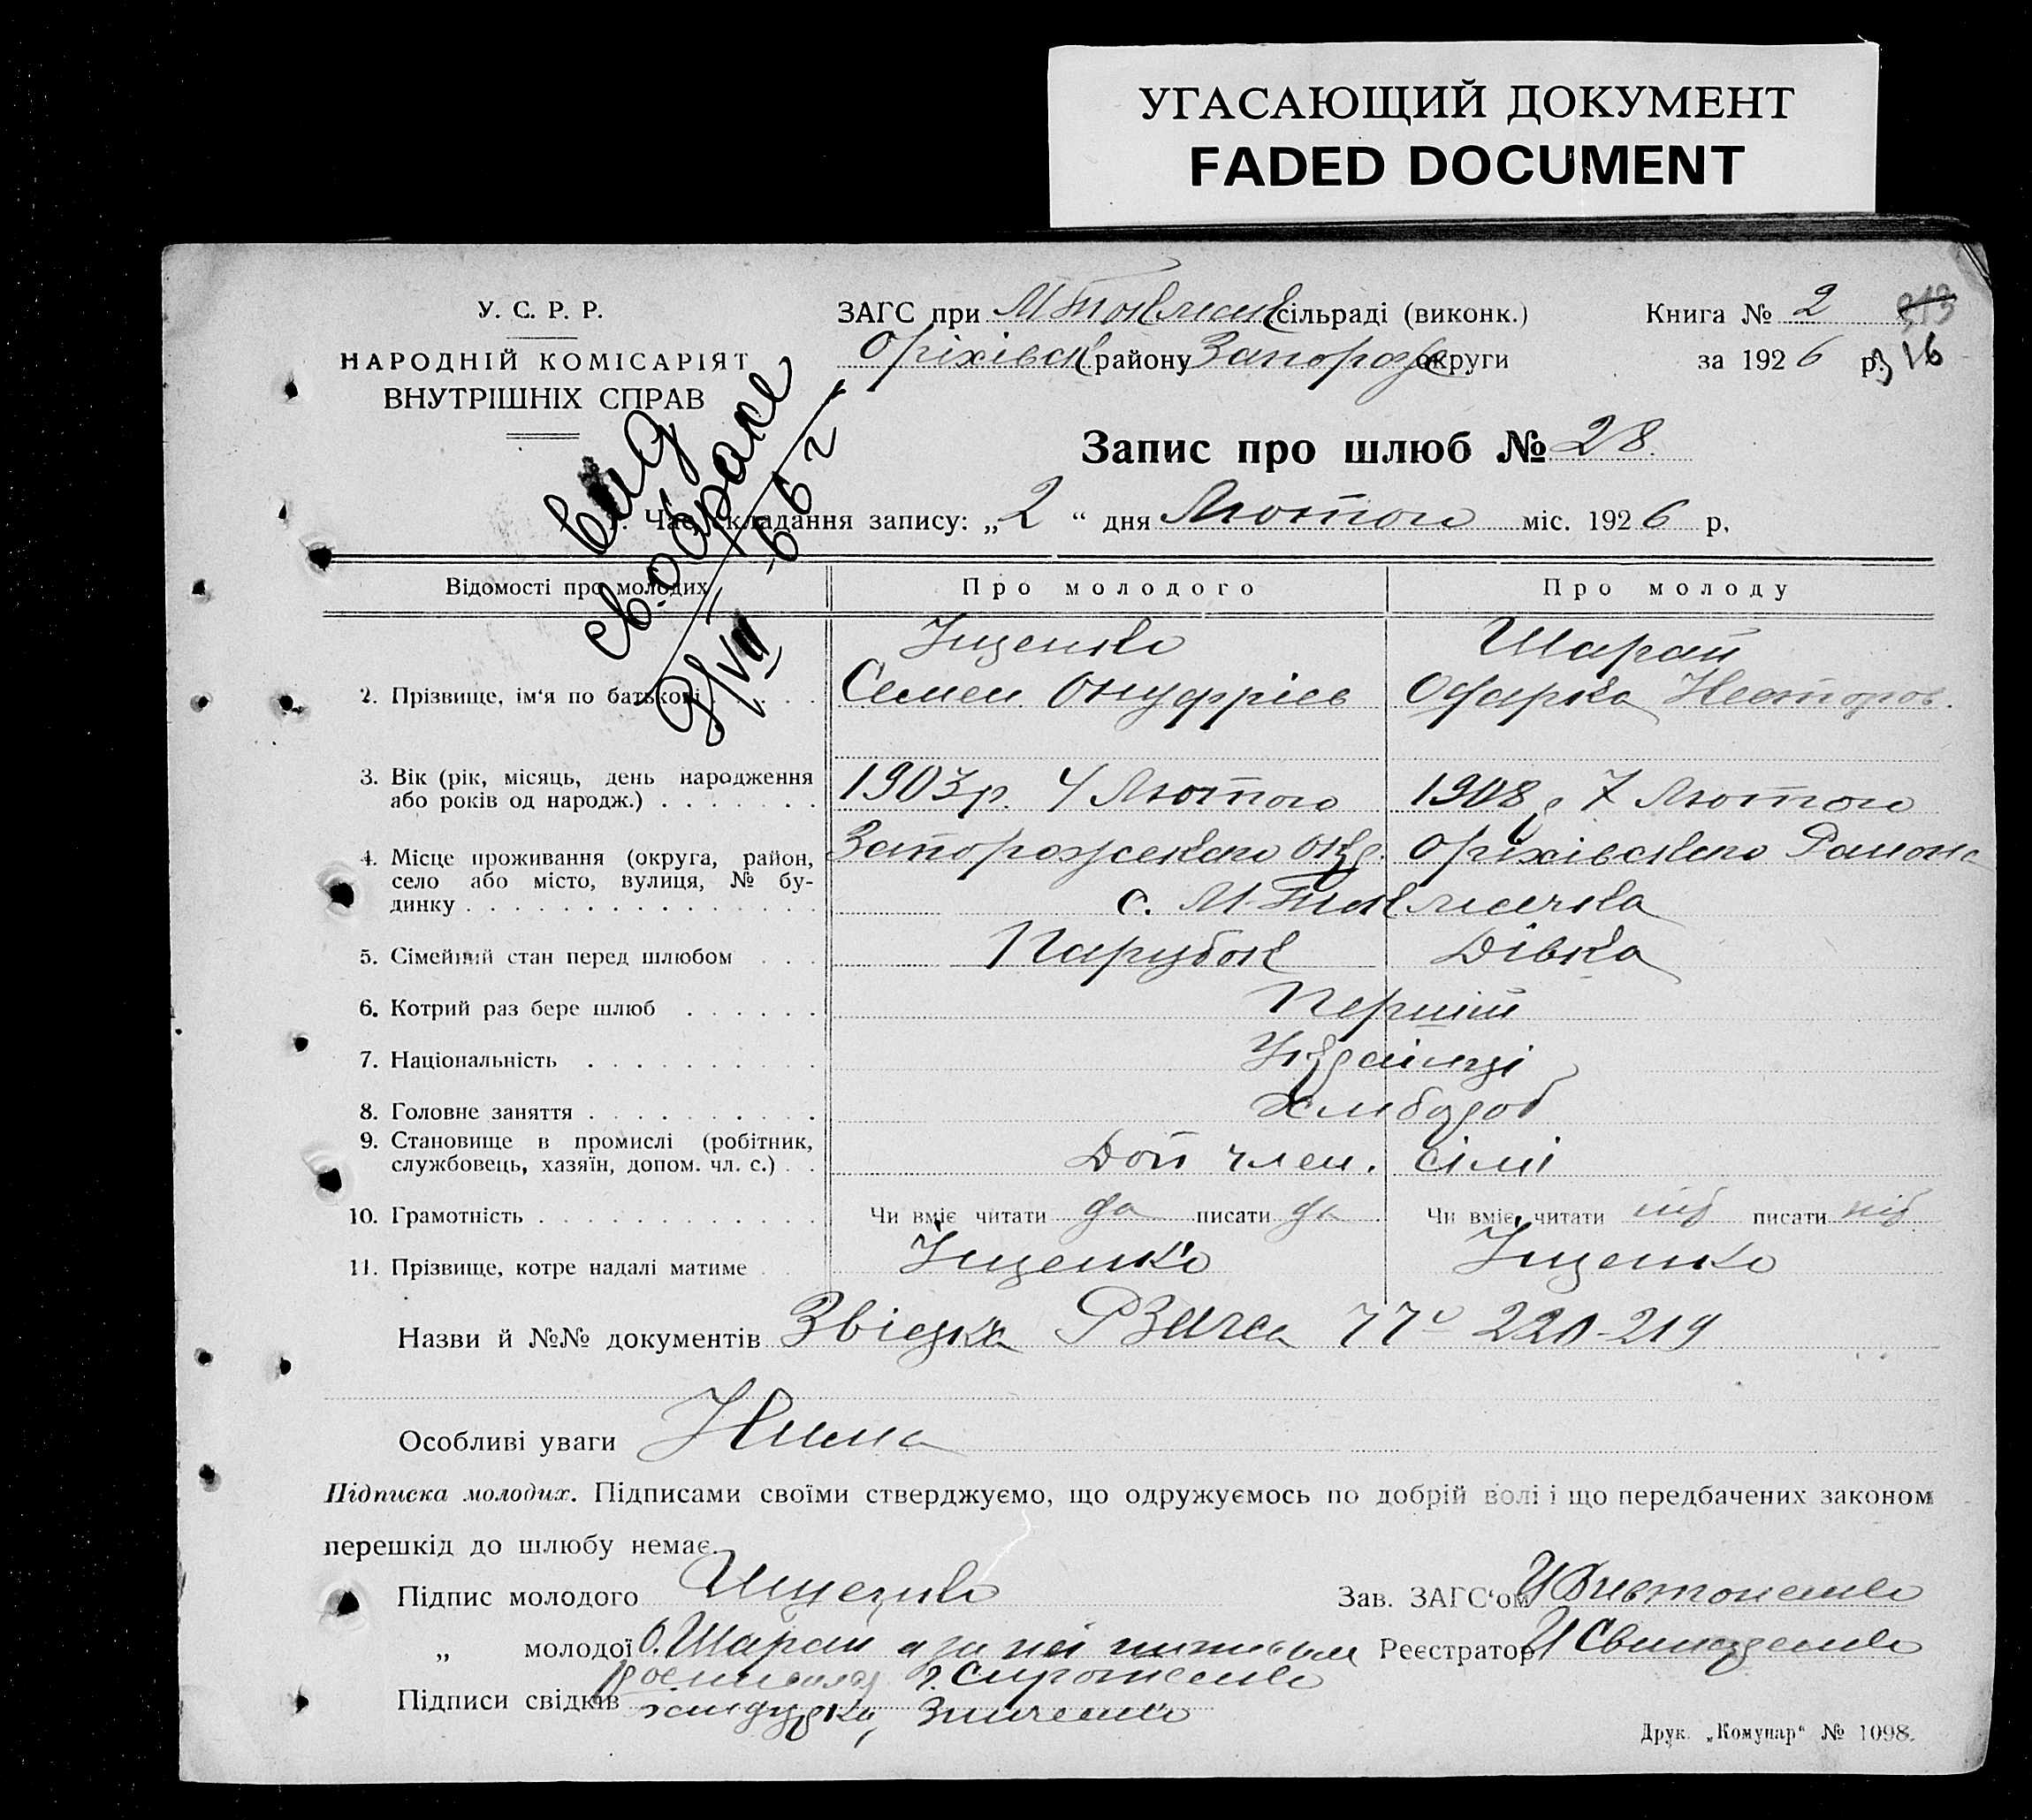 УГАСАЮЩИЙ ДОКУМЕНТ
FADED DOCUMENT
У. С. Р. Р.
НАРОДНІЙ КОМІСАРІЯТ
ВНУТРІШНІХ СПРАВ
ЗАГС при М Токмац сільраді (виконк.)
Оріхівск району Запорож округи
Книга № 2
за 1926 р.
313
316
Запис про шлюб № 28
выд
св. о браке
9/VII 66 г
1. Час складання запису: „2“ дня Лютого міс. 1926 р.
Відомості про молодих Про молодого Про молоду
Іщенко Шарай
2. Прізвище, ім'я по батькові Семен Онуфріев Одарка Несторов.
3. Вік (рік, місяць, день народження
або років од народж.) 1903 р. 4 Лютого 1908 р 7 Лютого
4. Місце проживання (округа, район,
село або місто, вулиця, № бу-
динку
Запорожского окр. Оріхівского Района
с. М-Токмачка
5. Сімейний стан перед шлюбом Парубок Дівка
6. Котрий раз бере шлюб Перший
7. Національність Українці
8. Головне заняття Хлибороб
9. Становище в промислі (робітник,
службовець, хазяїн, допом. чл. с.) Доп член. сімі
10. Грамотність Чи вміє читати да писати да Чи вміє читати ніт писати ніт
11. Прізвище, котре надалі матиме Іщенко Іщенко
Назви й №№ документів Звідка РЗагса 220-219
Особливі уваги Нима
Підписка молодих. Підписами своїми стверджуємо, що одружуємось по добрій волі і що передбачених законом
перешкід до шлюбу немає.
Підпис молодого Ищенко
Зав. ЗАГС'ом
„ молодої О. Шарай а за неі
Реєстратор
Підписи свідків
Друк. „Комунар“ № 1098.